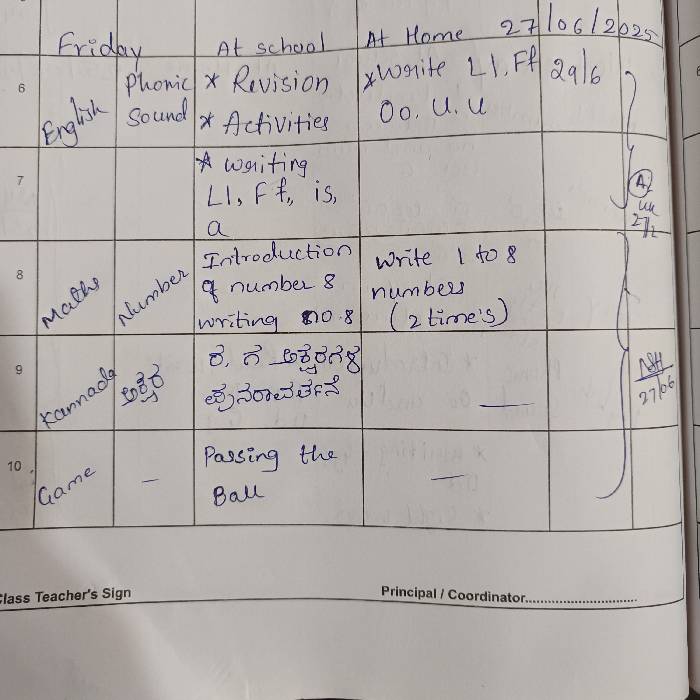 Friday At school At Home 27/06/2025
6 English Phonic Sound * Revision * Write Ll, Ff 29/6
* Activities Oo. U. u
7 * writing
Ll, Ff, is,
a
27/
8 Maths Number Introduction Write 1 to 8
of number 8 numbers
writing no. 8 (2 time's)
9 Kannada ಅಕ್ಷರ ಕ, ಗ ಅಕ್ಷರಗಳ
ಪುನರಾವರ್ತನೆ —
27/06
10 Game — Passing the —
Ball
Class Teacher's Sign Principal / Coordinator..............................